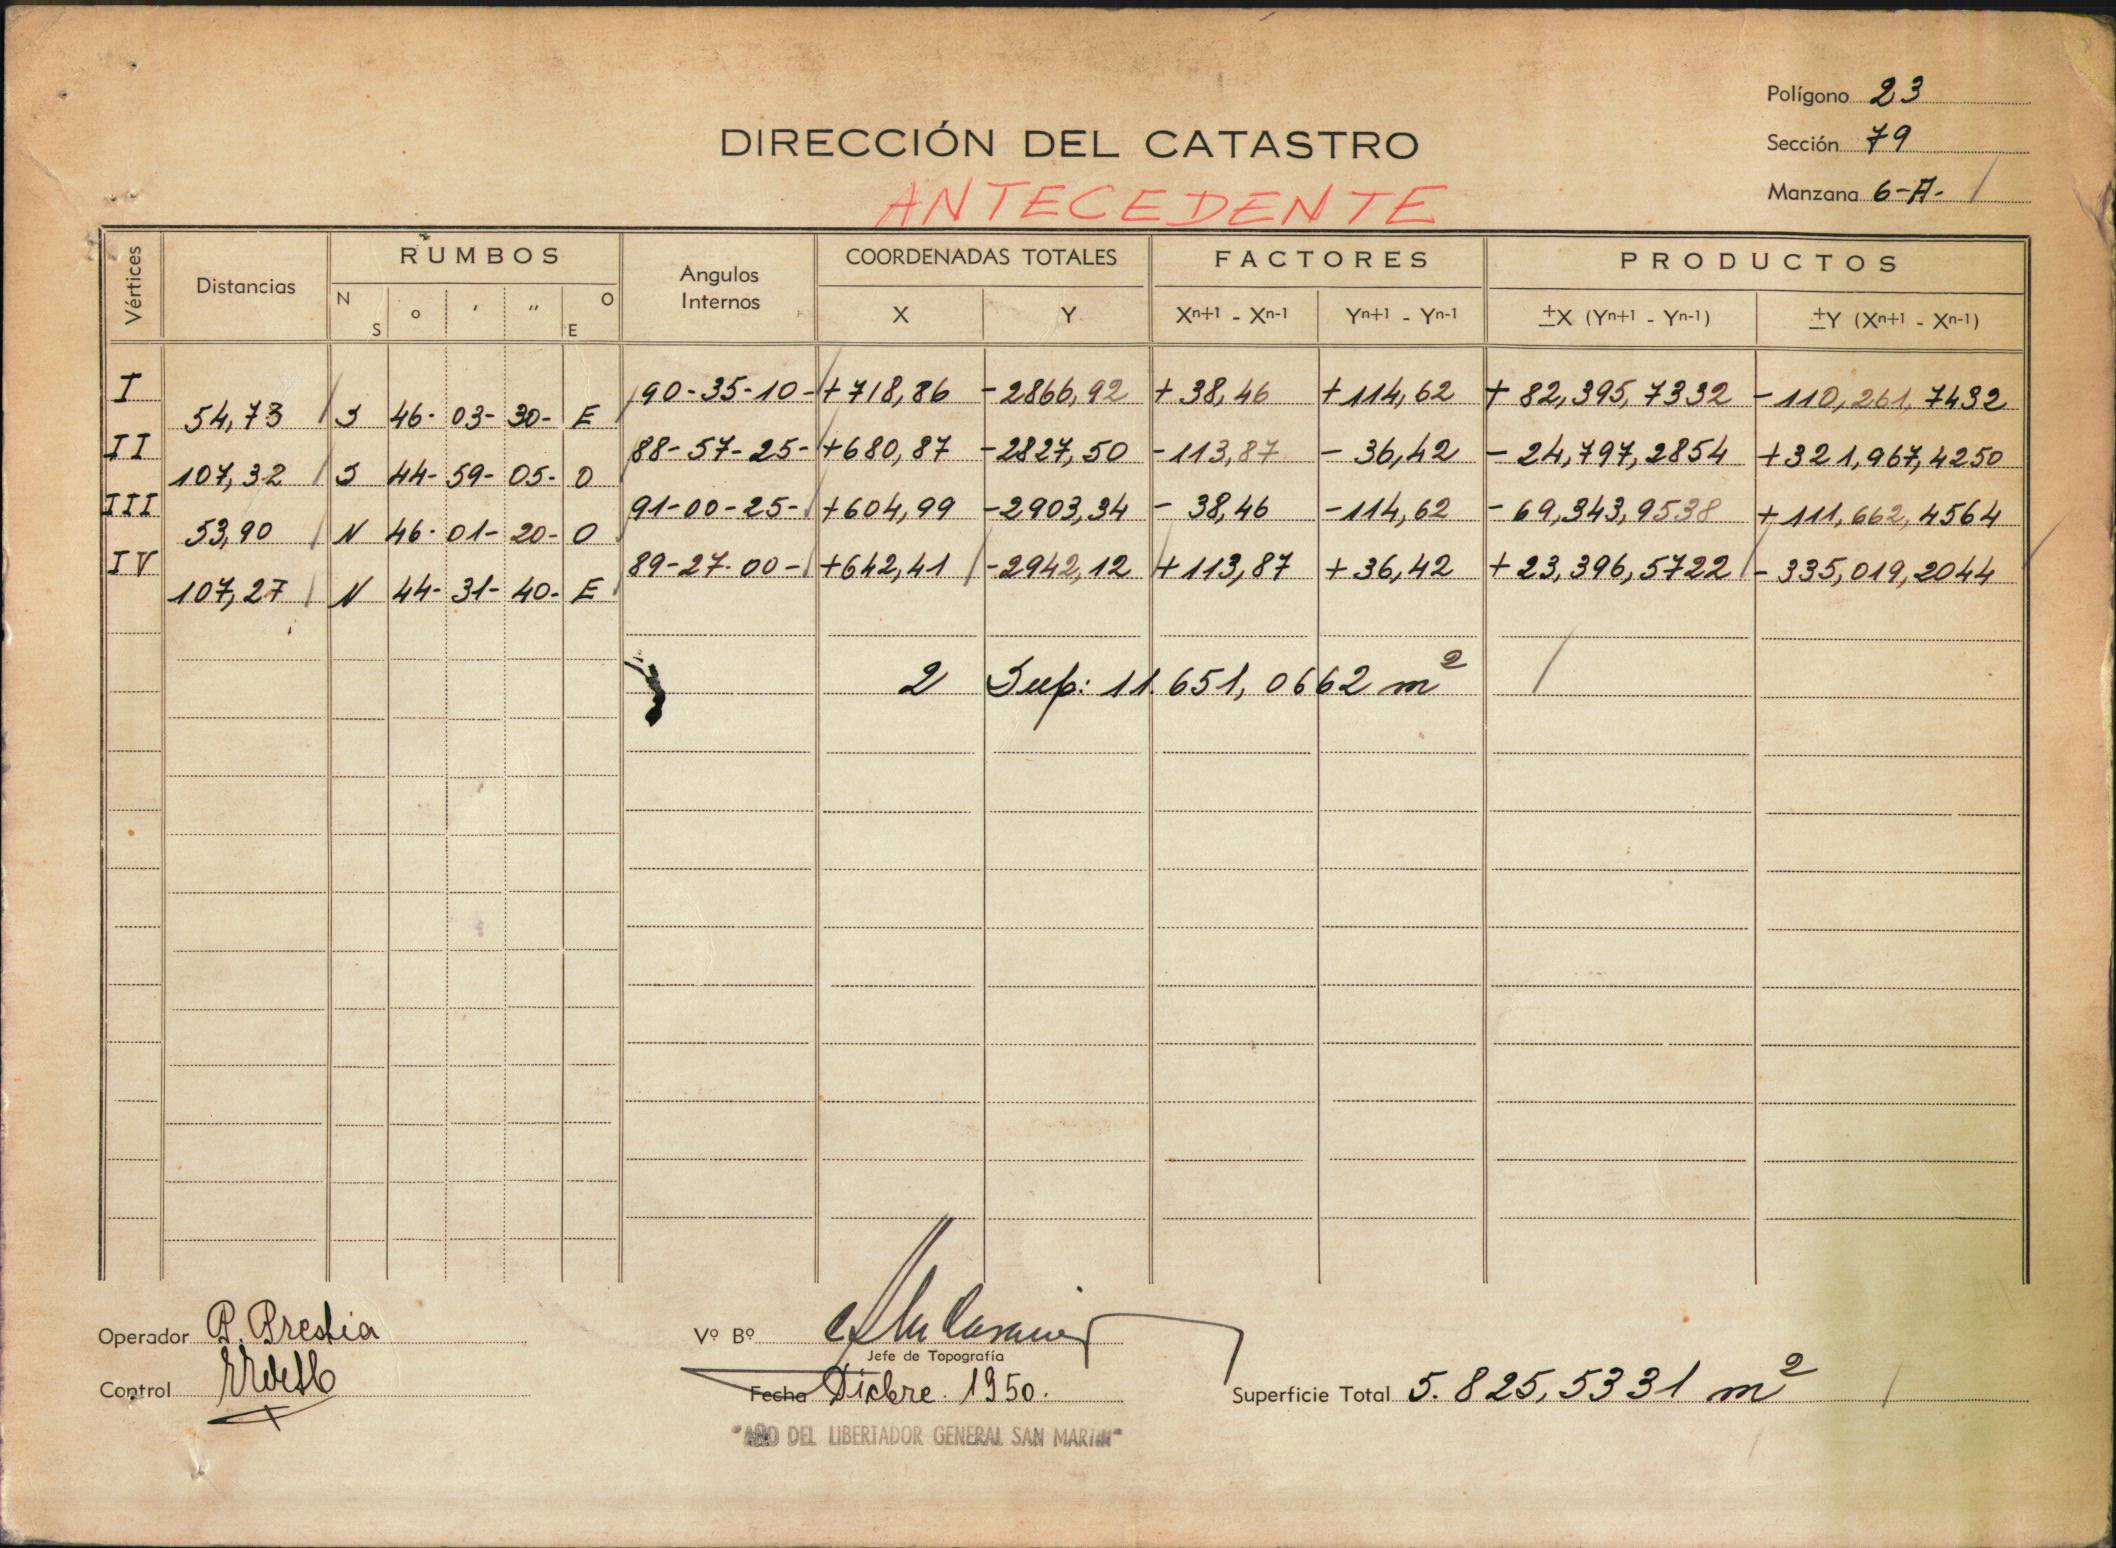 Polígono 23
DIRECCIÓN DEL CATASTRO
Sección 79
ANTECEDENTE
Manzana 6-A-
Vértices Distancias RUMBOS Angulos Internos COORDENADAS TOTALES FACTORES PRODUCTOS
N S o ' " O E X Y Xn+1 - Xn-1 Yn+1 - Yn-1 ±X (Yn+1 - Yn-1) ±Y (Xn+1 - Xn-1)
I 90-35-10- +718,86 -2866,92 +38,46 +114,62 +82,395,7332 -110,261,7432
54,73 S 46- 03- 30- E
II 88-57-25- +680,87 -2827,50 -113,87 -36,42 -24,797,2854 +321,967,4250
107,32 S 44- 59- 05- O
III 91-00-25- +604,99 -2903,34 -38,46 -114,62 -69,343,9538 +111,662,4564
53,90 N 46- 01- 20- O
IV 89-27-00- +642,41 -2942,12 +113,87 +36,42 +23,396,5722 -335,019,2044
107,27 N 44- 31- 40- E
2 Sup: 11.651,0662 m²
Operador P. Brestia
Vº Bº
Jefe de Topografía
Control
Fecha Dicbre. 1950.
Superficie Total 5.825,5331 m²
"AÑO DEL LIBERTADOR GENERAL SAN MARTIN"